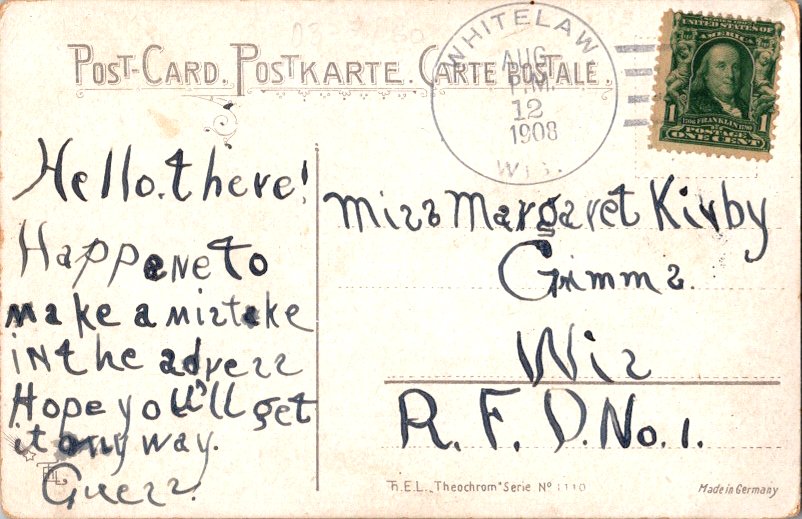 POST-CARD. POSTKARTE. CARTE POSTALE.
WHITELAW
AUG
P.M.
12
1908
WIS.
UNITED STATES OF
AMERICA
1 1706 FRANKLIN 1790 1
POSTAGE
ONE CENT
Hello there!
Happene to
make a mistake
in the adress
Hope you'll get
it any way.
Guess.
Miss Margaret Kirby
Grimms.
Wis
R. F. D. No. 1.
T.H.E.L. „Theochrom" Serie No 1110
Made in Germany